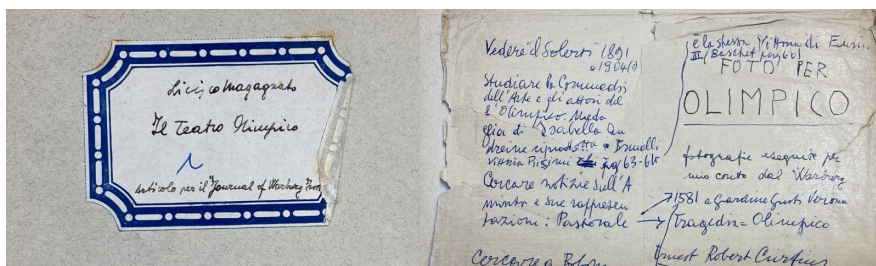 Licisco Magagnato
Il Teatro Olimpico
1
Articolo per il "Journal of Warburg
Vedere il Solerti 1891
1904(5)
Studiare la Commedia
dell'Arte e gli attori del
l'Olimpico. Meda
glia di Isabella An
dreini riprodotta
Vittoria Piissimi pg 63-65
Cercare notizie sull'A
minta e sue rappresen
tazioni: Pastorale
Cercare a
è la stessa Vittoria di Enrico
III (Baschet pag 66)
FOTO PER
OLIMPICO
fotografie eseguite per
mio conto dal Warburg
1581 a Giardino Giusti Verona
Tragedia = Olimpico
Ernest Robert Curtius